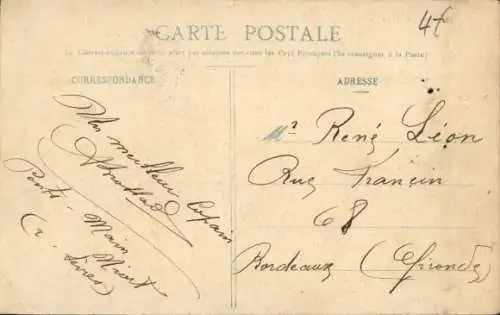 CARTE POSTALE
La Correspondance au recto n'est pas acceptée par tous les Pays Etrangers (Se renseigner à la Poste)
4€
CORRESPONDANCE
Un meilleur Copain
Ponts-Main
Niort
(2. Sèvres)
ADRESSE
Mr René Léon
Rue Françin
68
Bordeaux (Gironde)